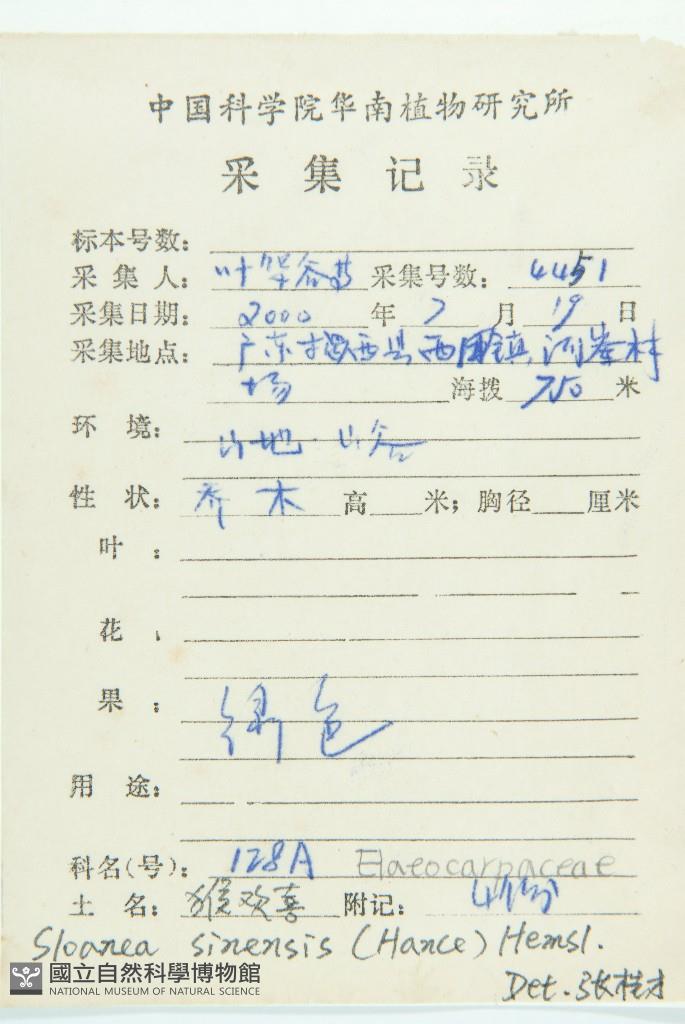 中国科学院华南植物研究所
采集记录
标本号数:
采集人: 叶华谷 采集号数: 4451
采集日期: 2000 年 7 月 19 日
采集地点: 广东 西县 镇
场 海拨 750 米
环境: 山地. 山谷
性状: 乔木 高 米; 胸径 厘米
叶:
花:
果: 绿色
用途:
科名(号): 128A Elaeocarpaceae
土名: 猴欢喜 附记: 4份
Sloanea sinensis (Hance) Hemsl.
Det. 张桂才
國立自然科學博物館
NATIONAL MUSEUM OF NATURAL SCIENCE